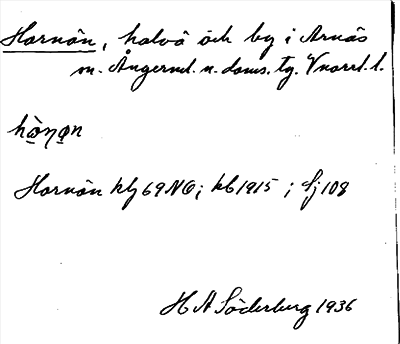 Hornön, halvö och by i Arnäs
sn. Ångerml. n. doms. tg. Vnorrl. l.
hò̱ŋa̱n
Hornön hlj 69 NO; kb 1915; fj 108
H A Söderberg 1936